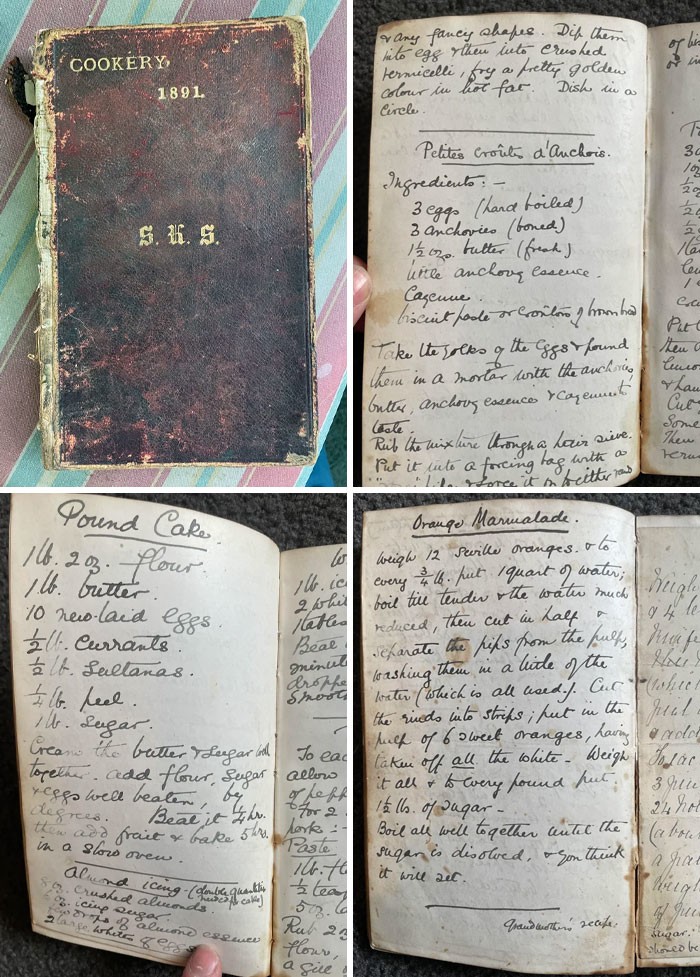 COOKERY
1891.
S. H. S.
& any fancy shapes. Dip them
into egg & then into crushed
vermicelli, fry a pretty golden
colour in hot fat. Dish in a
circle.
Petites Croûtes d'Anchois.
Ingredients:-
3 eggs (hard boiled)
3 anchovies (boned)
1½ ozs. butter (fresh)
little anchovy essence.
Cayenne.
biscuit paste or croûtons of brown bread
Take the yolks of the eggs & pound
them in a mortar with the anchovies,
butter, anchovy essence & cayenne to
taste.
Rub the mixture through a hair sieve.
Put it into a forcing bag with a
& force it on to either
Put
then
lemon
Cut
Some
Then
Pound Cake.
1 lb. 2 oz. flour.
1 lb. butter.
10 new-laid eggs.
½ lb. Currants.
½ lb. Sultanas.
¼ lb. peel.
1 lb. Sugar.
Cream the butter & sugar well
together. add flour, sugar
& eggs well beaten, by
degrees. Beat it ¼ hr.
then add fruit & bake 5 hrs.
in a slow oven.
Almond icing - (double quantities
for cake)
oz. crushed almonds
oz. icing sugar.
drops of almond essence
2 large whites of eggs
1 lb.
2 whit
Beat
minut
droppe
smooth
To eac
allow
of pepp
For 2
pork:-
Paste
1 lb. fl
½ teas
5 oz.
Rub 2
flour,
a gill
Orange Marmalade.
Weigh 12 Seville oranges. & to
every ¾ lb. put 1 quart of water;
boil till tender & the water much
reduced, then cut in half &
separate the pips from the pulp,
washing them in a little of the
water (which is all used). Cut
the rinds into strips; put in the
pulp of 6 sweet oranges, having
taken off all the white. Weigh
it all & to every pound put
1½ lbs. of sugar -
Boil all well together until the
sugar is disolved, & you think
it will set.
Grandmother's recipe.
Weigh
& 4 lb
(which
add
3
24 hou
(abou
Weigh
of
sugar.
should be